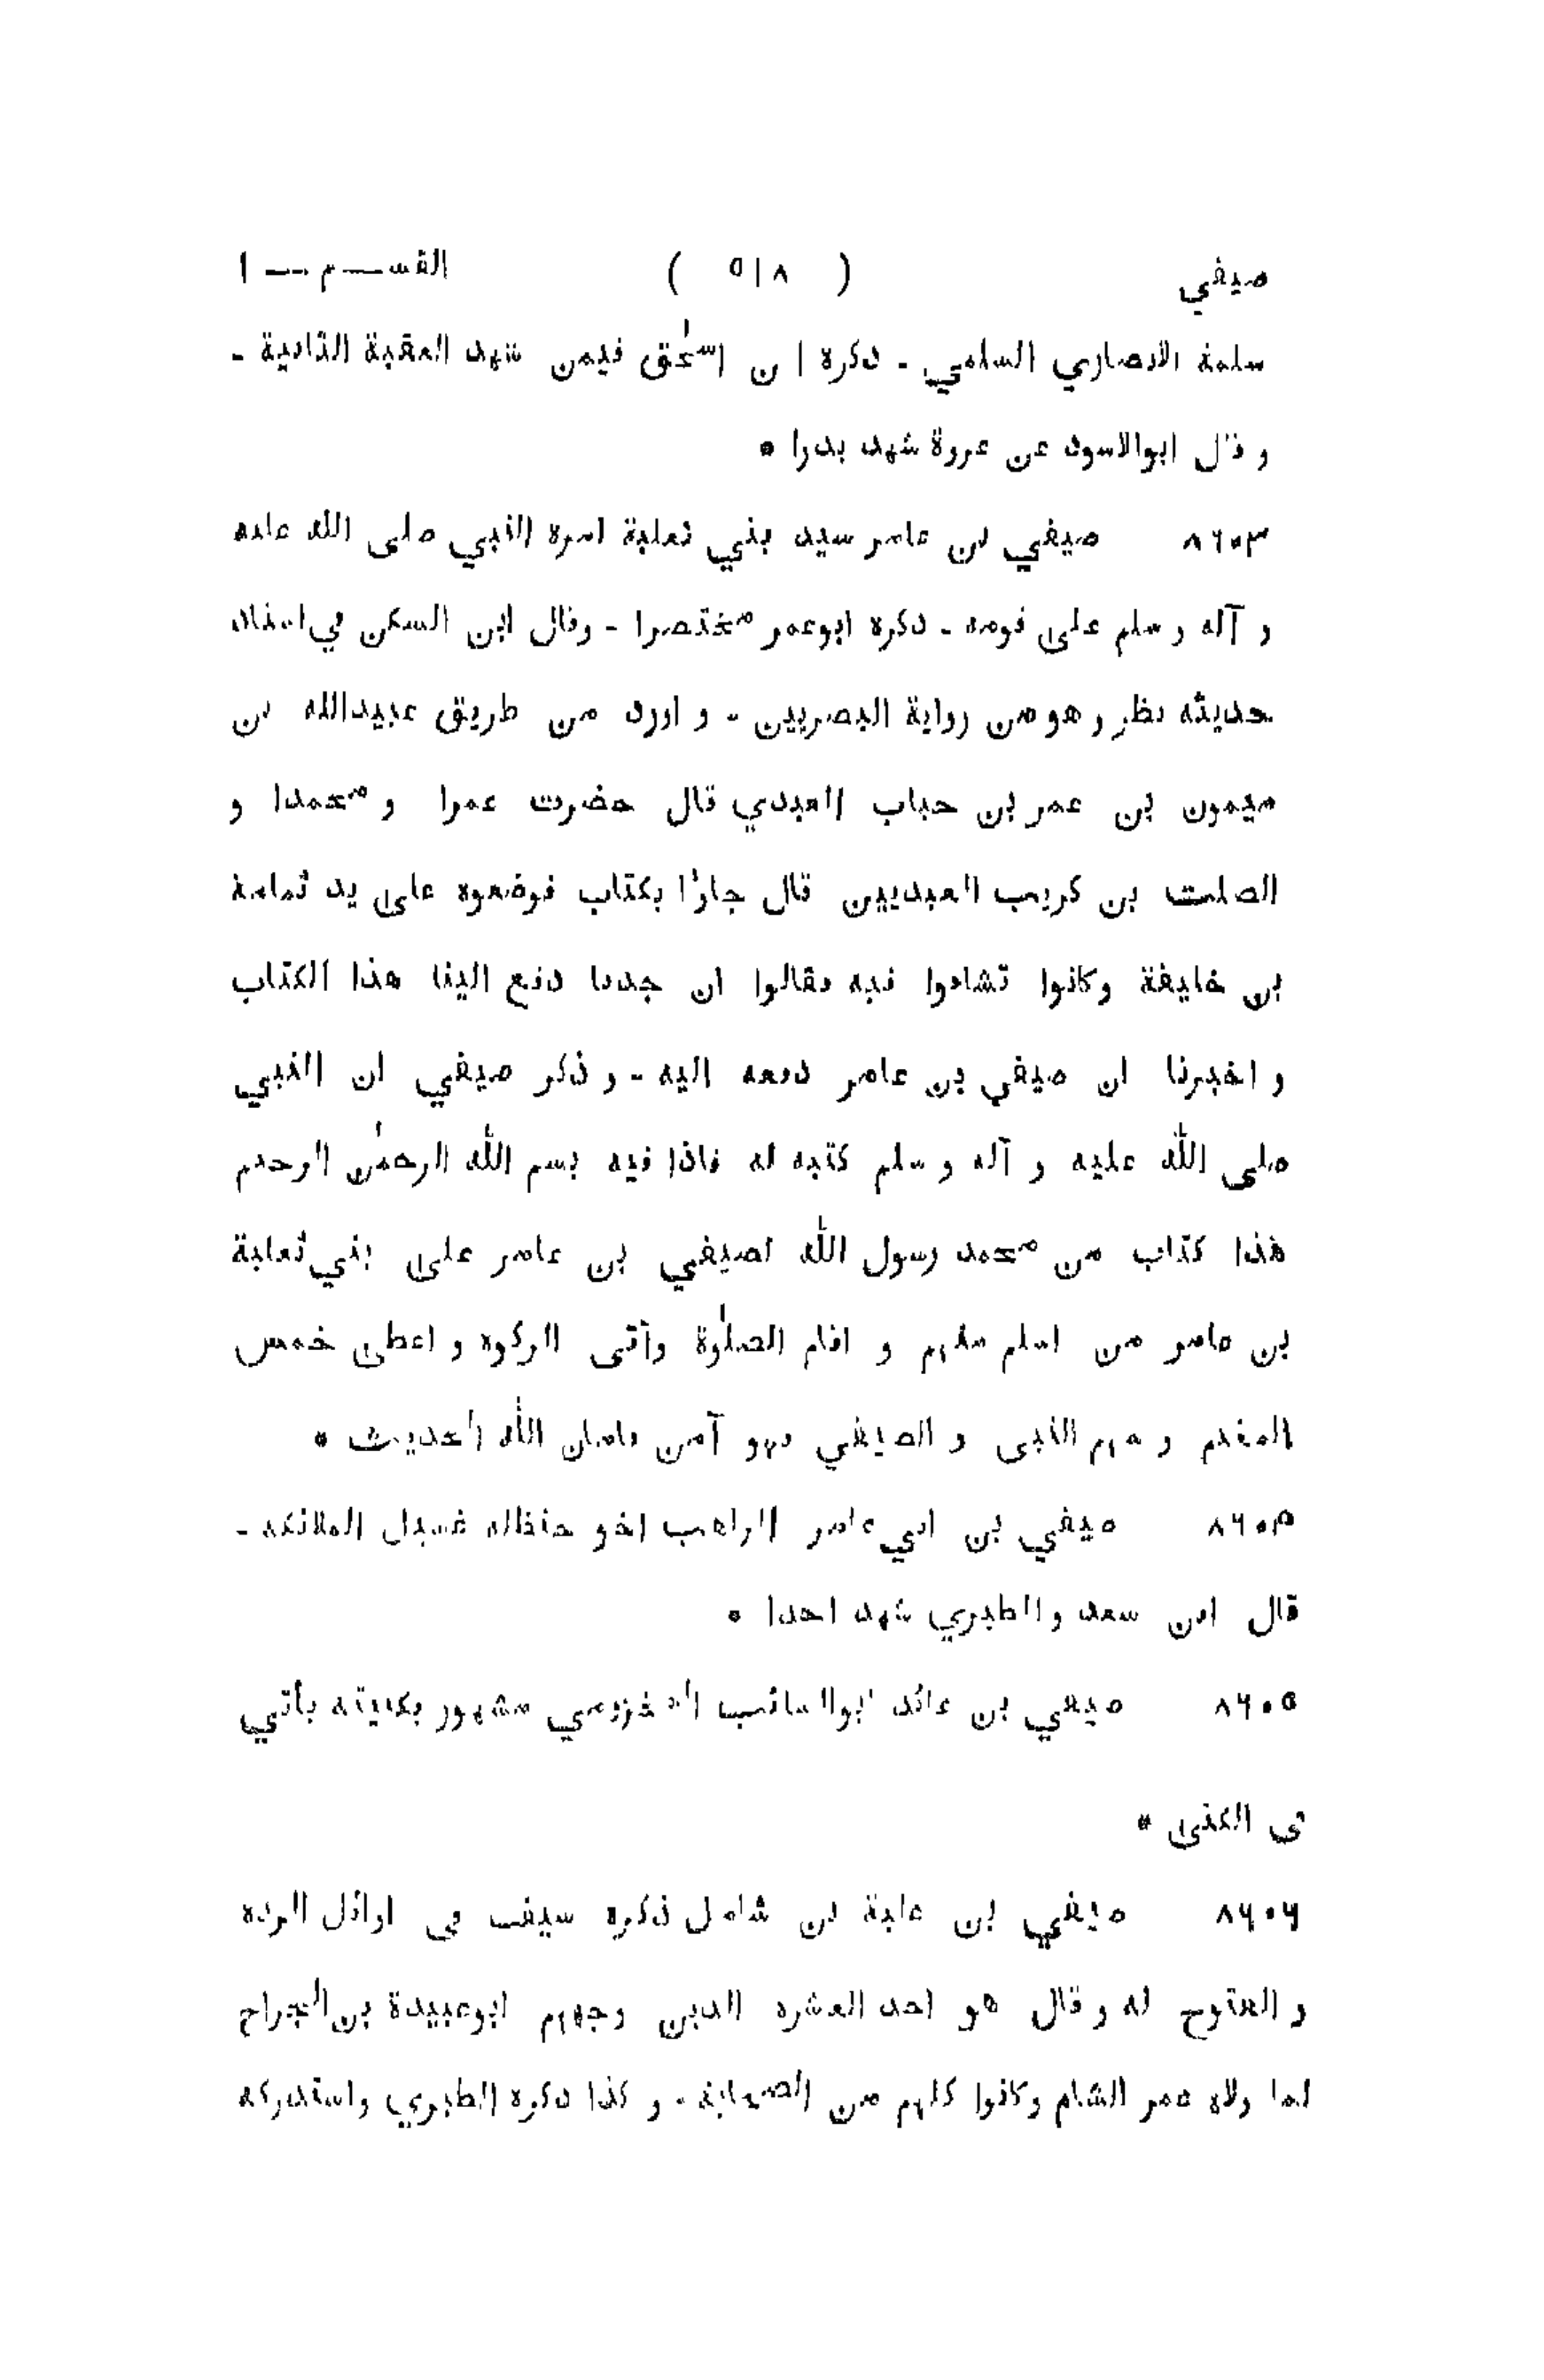 صيفي ( ٥١٨ ) القســم — ١
سلمة الانصاري السلمي - ذكره ابن اسحٰق فيمن شهد العقبة الثانية -
و قال ابوالاسود عن عروة شهد بدرا *
٨٦٠٣ صيفي بن عامر سيد بني ثعلبة امره النبي صلى الله عليه
و آله و سلم على قومه - ذكره ابوعمر مختصرا - وقال ابن السكن في اسناد
حديثه نظر و هو من رواية البصريين - و اورد من طريق عبيدالله بن
ميمون بن عمر بن حباب العبدي قال حضرت عمرا و محمدا و
الصلت بن كريب العبديين قال جاؤا بكتاب فوضعوه على يد ثمامة
بن خليفة وكانوا تشاموا فيه فقالوا ان جدنا دفع الينا هذا الكتاب
و اخبرنا ان صيفي بن عامر دفعه اليه - و ذكر صيفي ان النبي
صلى الله عليه و آله و سلم كتبه له فاذا فيه بسم الله الرحمٰن الرحيم
هذا كتاب من محمد رسول الله لصيفي بن عامر على بني ثعلبة
بن عامر من اسلم منهم و اقام الصلٰوة وآتى الزكوة و اعطى خمس
المغنم و سهم النبى و الصيفي فهو آمن بامان الله الحديث *
٨٦٠٤ صيفي بن ابي عامر الراهب اخو حنظلة غسيل الملائكة -
قال ابن سعد والطبري شهد احدا *
٨٦٠٥ صيفي بن عائد ابوالسائب المخزومي مشهور بكنيته يأتي
في الكنى *
٨٦٠٦ صيفي بن علبة بن شامل ذكره سيف في اوائل الردة
و الفتوح له و قال هو احد العشرة الذين وجههم ابوعبيدة بن الجراح
لما ولاه عمر الشام وكانوا كلهم من الصحابة - و كذا ذكره الطبري واستدركه